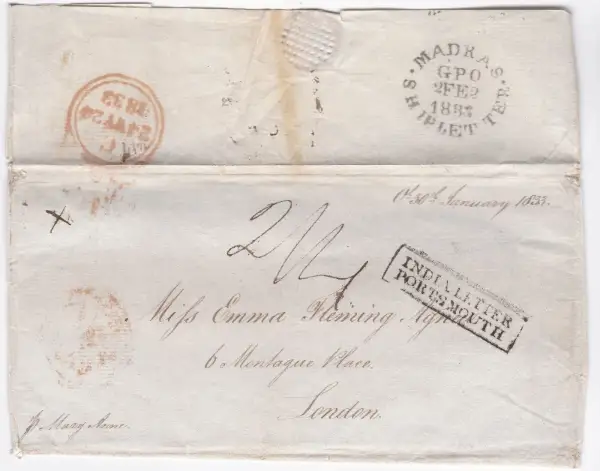 MADRAS
GPO
2FE2
1833
SHIPLETTER
24MY24
1833
30th January 1833.
2/4
INDIA LETTER
PORTSMOUTH
Miss Emma Fleming Agnew
6 Montague Place.
London.
p Mary Anne.